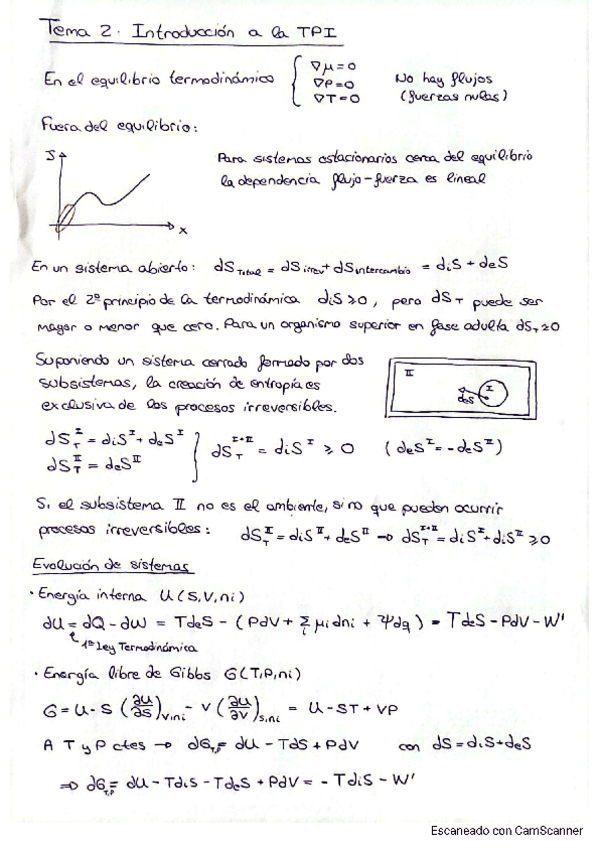 Tema 2. Introducción a la TPI
En el equilibrio termodinámico { ∇μ=0 ∇P=0 ∇T=0 No hay flujos (fuerzas nulas)
Fuera del equilibrio:
J
x
Para sistemas estacionarios cerca del equilibrio
la dependencia flujo-fuerza es lineal
En un sistema abierto: dS_Total = dS_irrev + dS_intercambio = diS + deS
Por el 2º principio de la termodinámica diS≥0, pero dS_T puede ser
mayor o menor que cero. Para un organismo superior en fase adulta dS_T≃0
Suponiendo un sistema cerrado formado por dos
subsistemas, la creación de entropía es
exclusiva de los procesos irreversibles.
II
I
deS
dS_T^I = diS^I + deS^I
dS_T^II = deS^II
} dS_T^(I+II) = diS^I ≥ 0 (deS^I = -deS^II)
Si el subsistema II no es el ambiente, sino que pueden ocurrir
procesos irreversibles: dS_T^II = diS^II + deS^II → dS_T^(I+II) = diS^I + diS^II ≥0
Evolución de sistemas
· Energía interna U(S,V,ni)
dU = dQ - dW = TdeS - (PdV + Σ_i μi dni + Ψdq) = TdeS - PdV - W'
1ª Ley Termodinámica
· Energía libre de Gibbs G(T,P,ni)
G = U - S (∂U/∂S)_V,ni - V (∂U/∂V)_S,ni = U - ST + VP
A T y P ctes → dG_T,P = dU - TdS + PdV con dS = diS + deS
⇒ dG_T,P = dU - TdiS - TdeS + PdV = - TdiS - W'
Escaneado con CamScanner